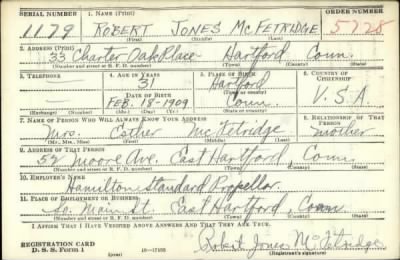 SERIAL NUMBER 1. NAME (Print) ORDER NUMBER
1179 ROBERT JONES MCFETRIDGE 5728
(First) (Middle) (Last)
2. ADDRESS (Print)
33 Charter Oak Place Hartford Conn.
(Number and street or R. F. D. number) (Town) (County) (State)
3. TELEPHONE 4. AGE IN YEARS 5. PLACE OF BIRTH 6. COUNTRY OF CITIZENSHIP
31 Hartford
DATE OF BIRTH (Town or county)
— Feb. 18-1909 Conn. U.S.A
(Exchange) (Number) (Mo.) (Day) (Yr.) (State or country)
7. NAME OF PERSON WHO WILL ALWAYS KNOW YOUR ADDRESS 8. RELATIONSHIP OF THAT PERSON
Mrs. Esther McFetridge mother
(Mr., Mrs., Miss) (First) (Middle) (Last)
9. ADDRESS OF THAT PERSON
52 Moore Ave. East Hartford, Conn
(Number and street or R. F. D. number) (Town) (County) (State)
10. EMPLOYER'S NAME
Hamilton Standard Propellor.
11. PLACE OF EMPLOYMENT OR BUSINESS
So. Main St. East Hartford, Conn.
(Number and street or R. F. D. number) (Town) (County) (State)
I AFFIRM THAT I HAVE VERIFIED ABOVE ANSWERS AND THAT THEY ARE TRUE.
REGISTRATION CARD
D. S. S. Form 1 (over) Robert Jones McFetridge
(Registrant's signature)